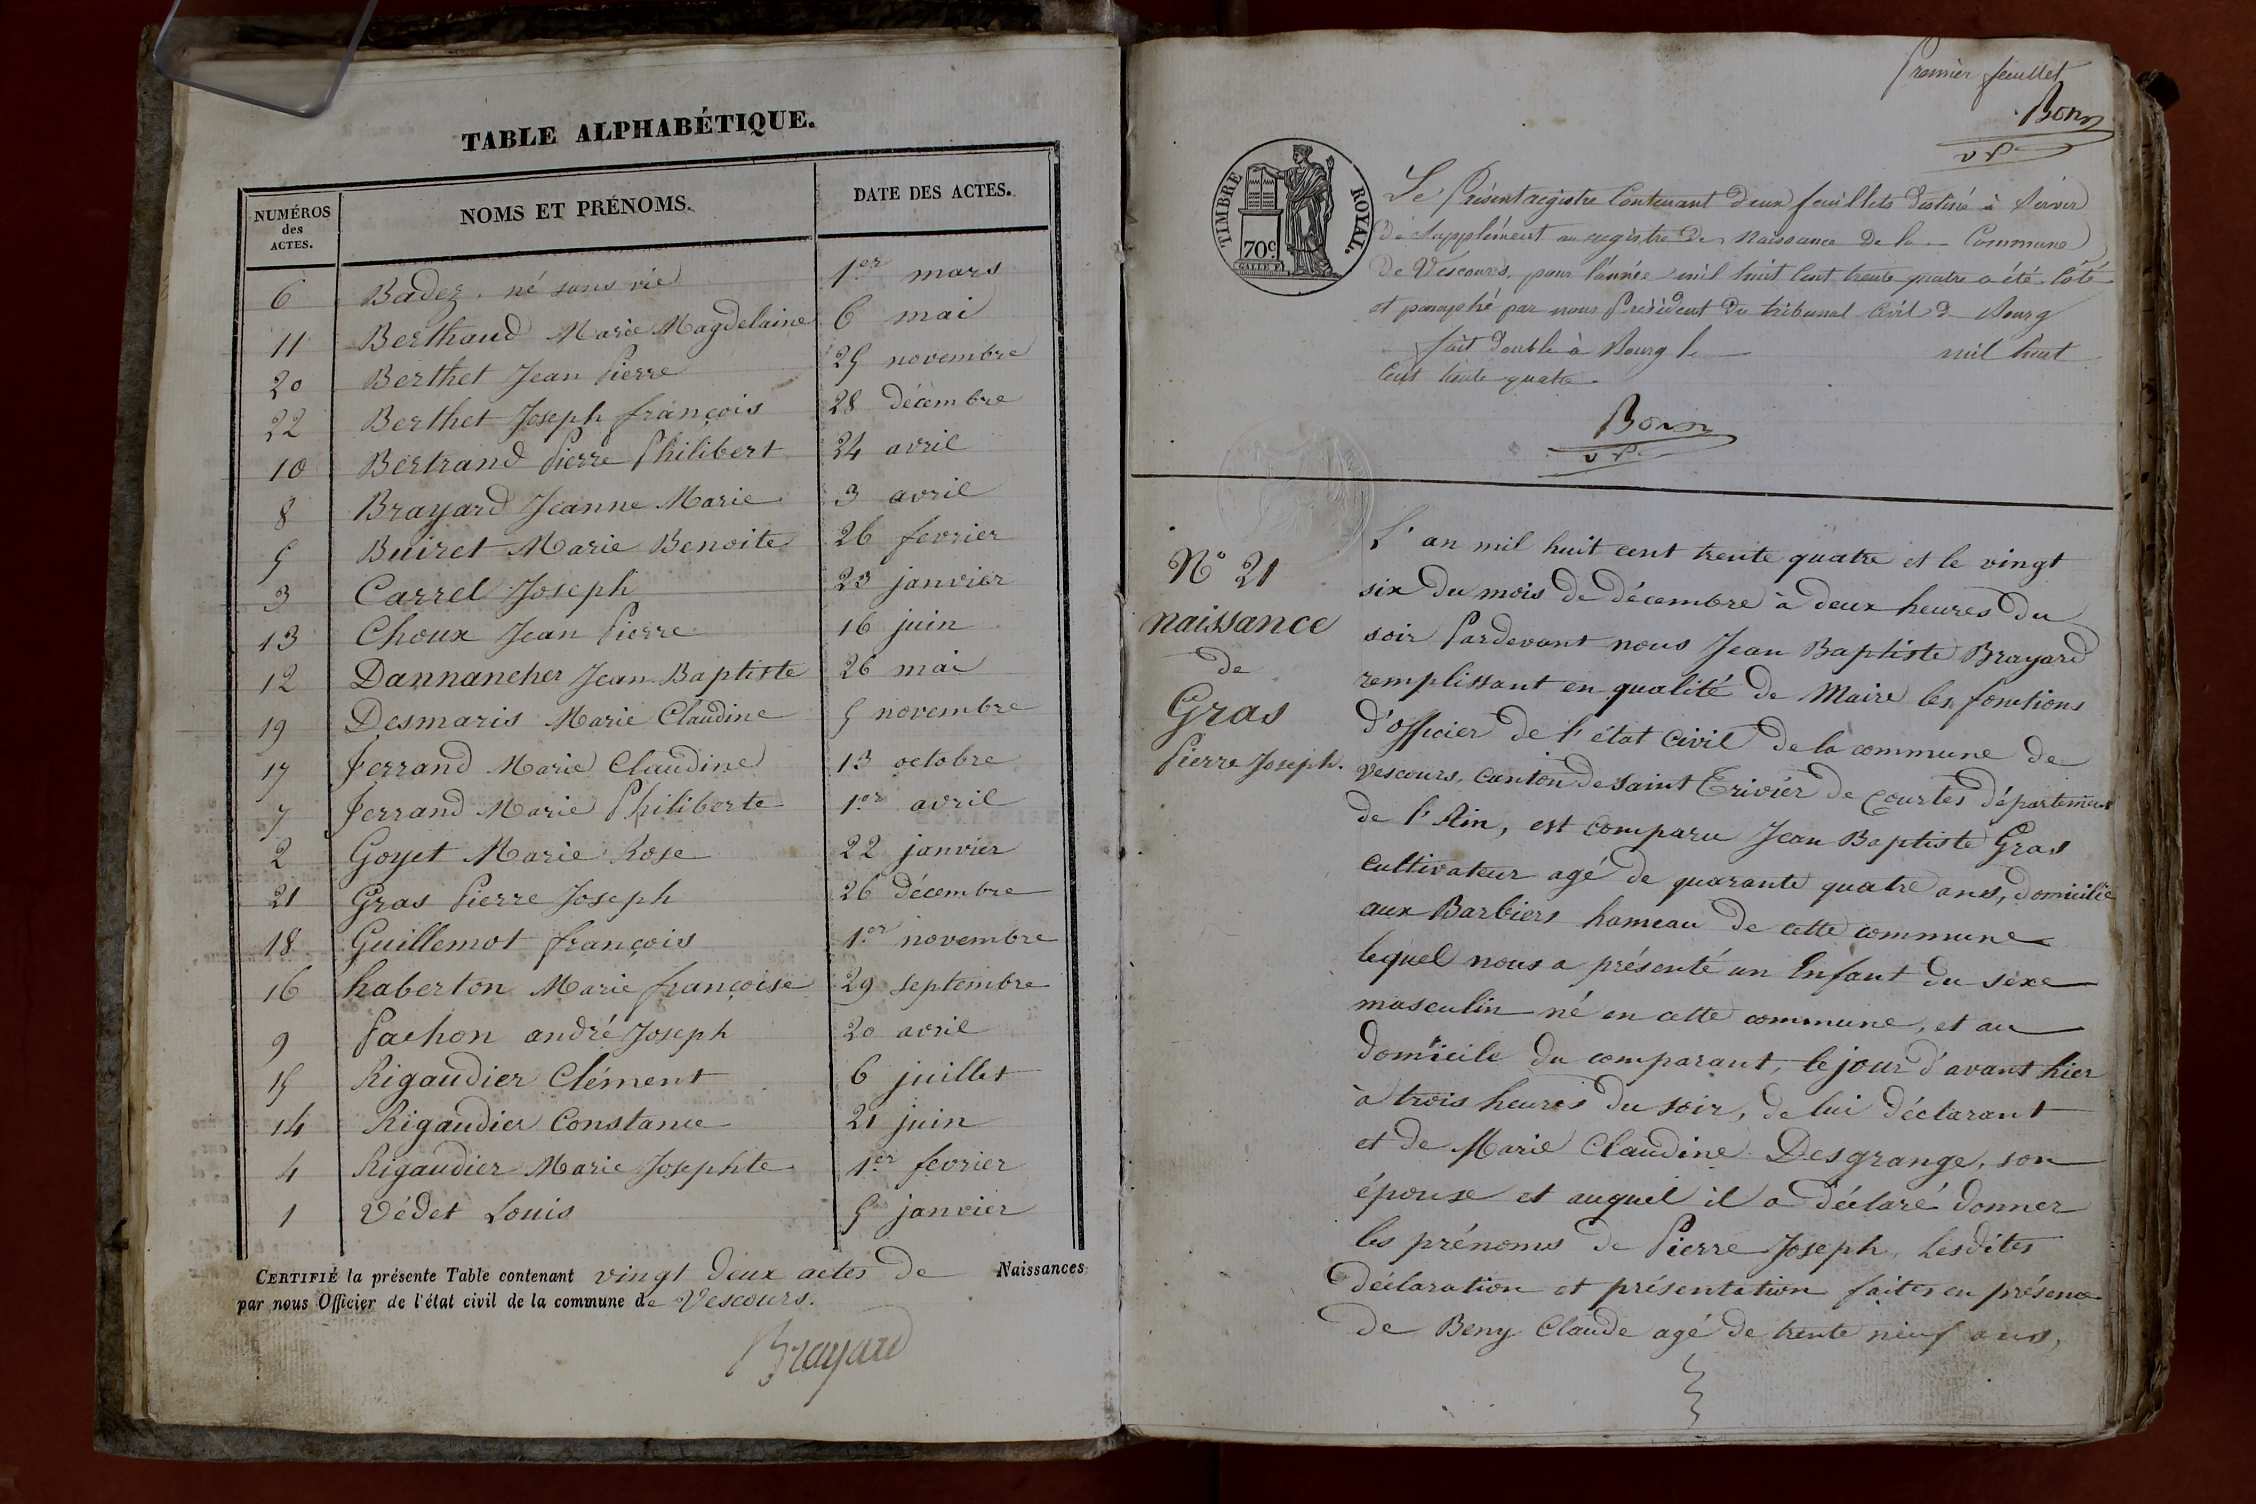 TABLE ALPHABÉTIQUE.
NUMÉROS des ACTES. NOMS ET PRÉNOMS. DATE DES ACTES.
6 Badez né sans vie 1.er mars
11 Berthaud Marie Magdelaine 6 mai
20 Berthet Jean Pierre 25 novembre
22 Berthet Joseph françois 28 décembre
10 Bertrand Pierre Philibert 24 avril
8 Brayard Jeanne Marie 3 avril
5 Buiret Marie Benoite 26 fevrier
3 Carrel Joseph 23 janvier
13 Choux Jean Pierre 16 juin
12 Dannancher Jean Baptiste 26 mai
19 Desmaris Marie Claudine 5 novembre
17 ferrand Marie Claudine 13 octobre
7 ferrand Marie Philiberte 1.er avril
2 Goyet Marie Rose 22 janvier
21 Gras Pierre Joseph 26 décembre
18 Guillemot françois 1.er novembre
16 haberton Marie françoise 29 septembre
9 Pachon andré Joseph 20 avril
15 Rigaudier Clément 6 juillet
14 Rigaudier Constance 21 juin
4 Rigaudier Marie Josephte 1.er fevrier
1 Védet Louis 5 janvier
CERTIFIÉ la présente Table contenant vingt deux actes de Naissances
par nous Officier de l'état civil de la commune de Vescours.
Brayard
Premier feuillet
Bon
TIMBRE ROYAL.
70c
Le Présent registre Contenant deux feuillets destiné à Servir
de Supplément au registre de Naissance de la Commune
de Vescours, pour l'année mil huit Cent trente quatre a été Côté
et paraphé par nous Président du tribunal Civil de Bourg
fait double à Bourg le mil huit
Cent trente quatre
Bon
N° 21
naissance
de
Gras
Pierre Joseph.
L'an mil huit cent trente quatre et le vingt
six du mois de décembre à deux heures du
soir Pardevant nous Jean Baptiste Brayard
remplissant en qualité de Maire les fonctions
d'officier de l'état Civil de la commune de
Vescours, canton de Saint Trivier de Courtes département
de l'Ain, est comparu Jean Baptiste Gras
cultivateur agé de quarante quatre ans, domicilié
aux Barbiers hameau de cette commune
lequel nous a présenté un Enfant du sexe
masculin né en cette commune, et au
domicile du comparant, le jour d'avant hier
à trois heures du soir, de lui déclarant
et de Marie Claudine Desgrange, son
épouse et auquel il a déclaré donner
les prénoms de Pierre Joseph, Lesdites
déclaration et présentation faites en présence
de Beny Claude agé de trente neuf ans,